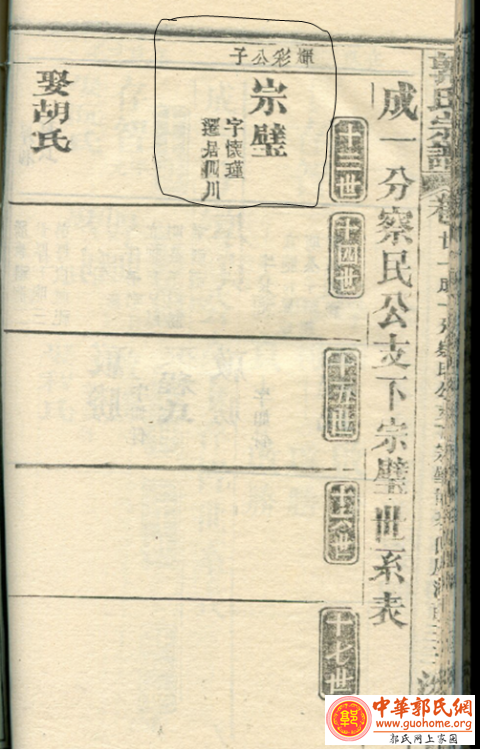 郭氏宗譜
成一分察民公支下宗璧世系表
十三世
十四世
十五世
十六世
十七世
輝彩公子
宗璧
字懷瑾
遷居四川
娶胡氏
中華郭氏網
www.guohome.org
郭氏网上家园